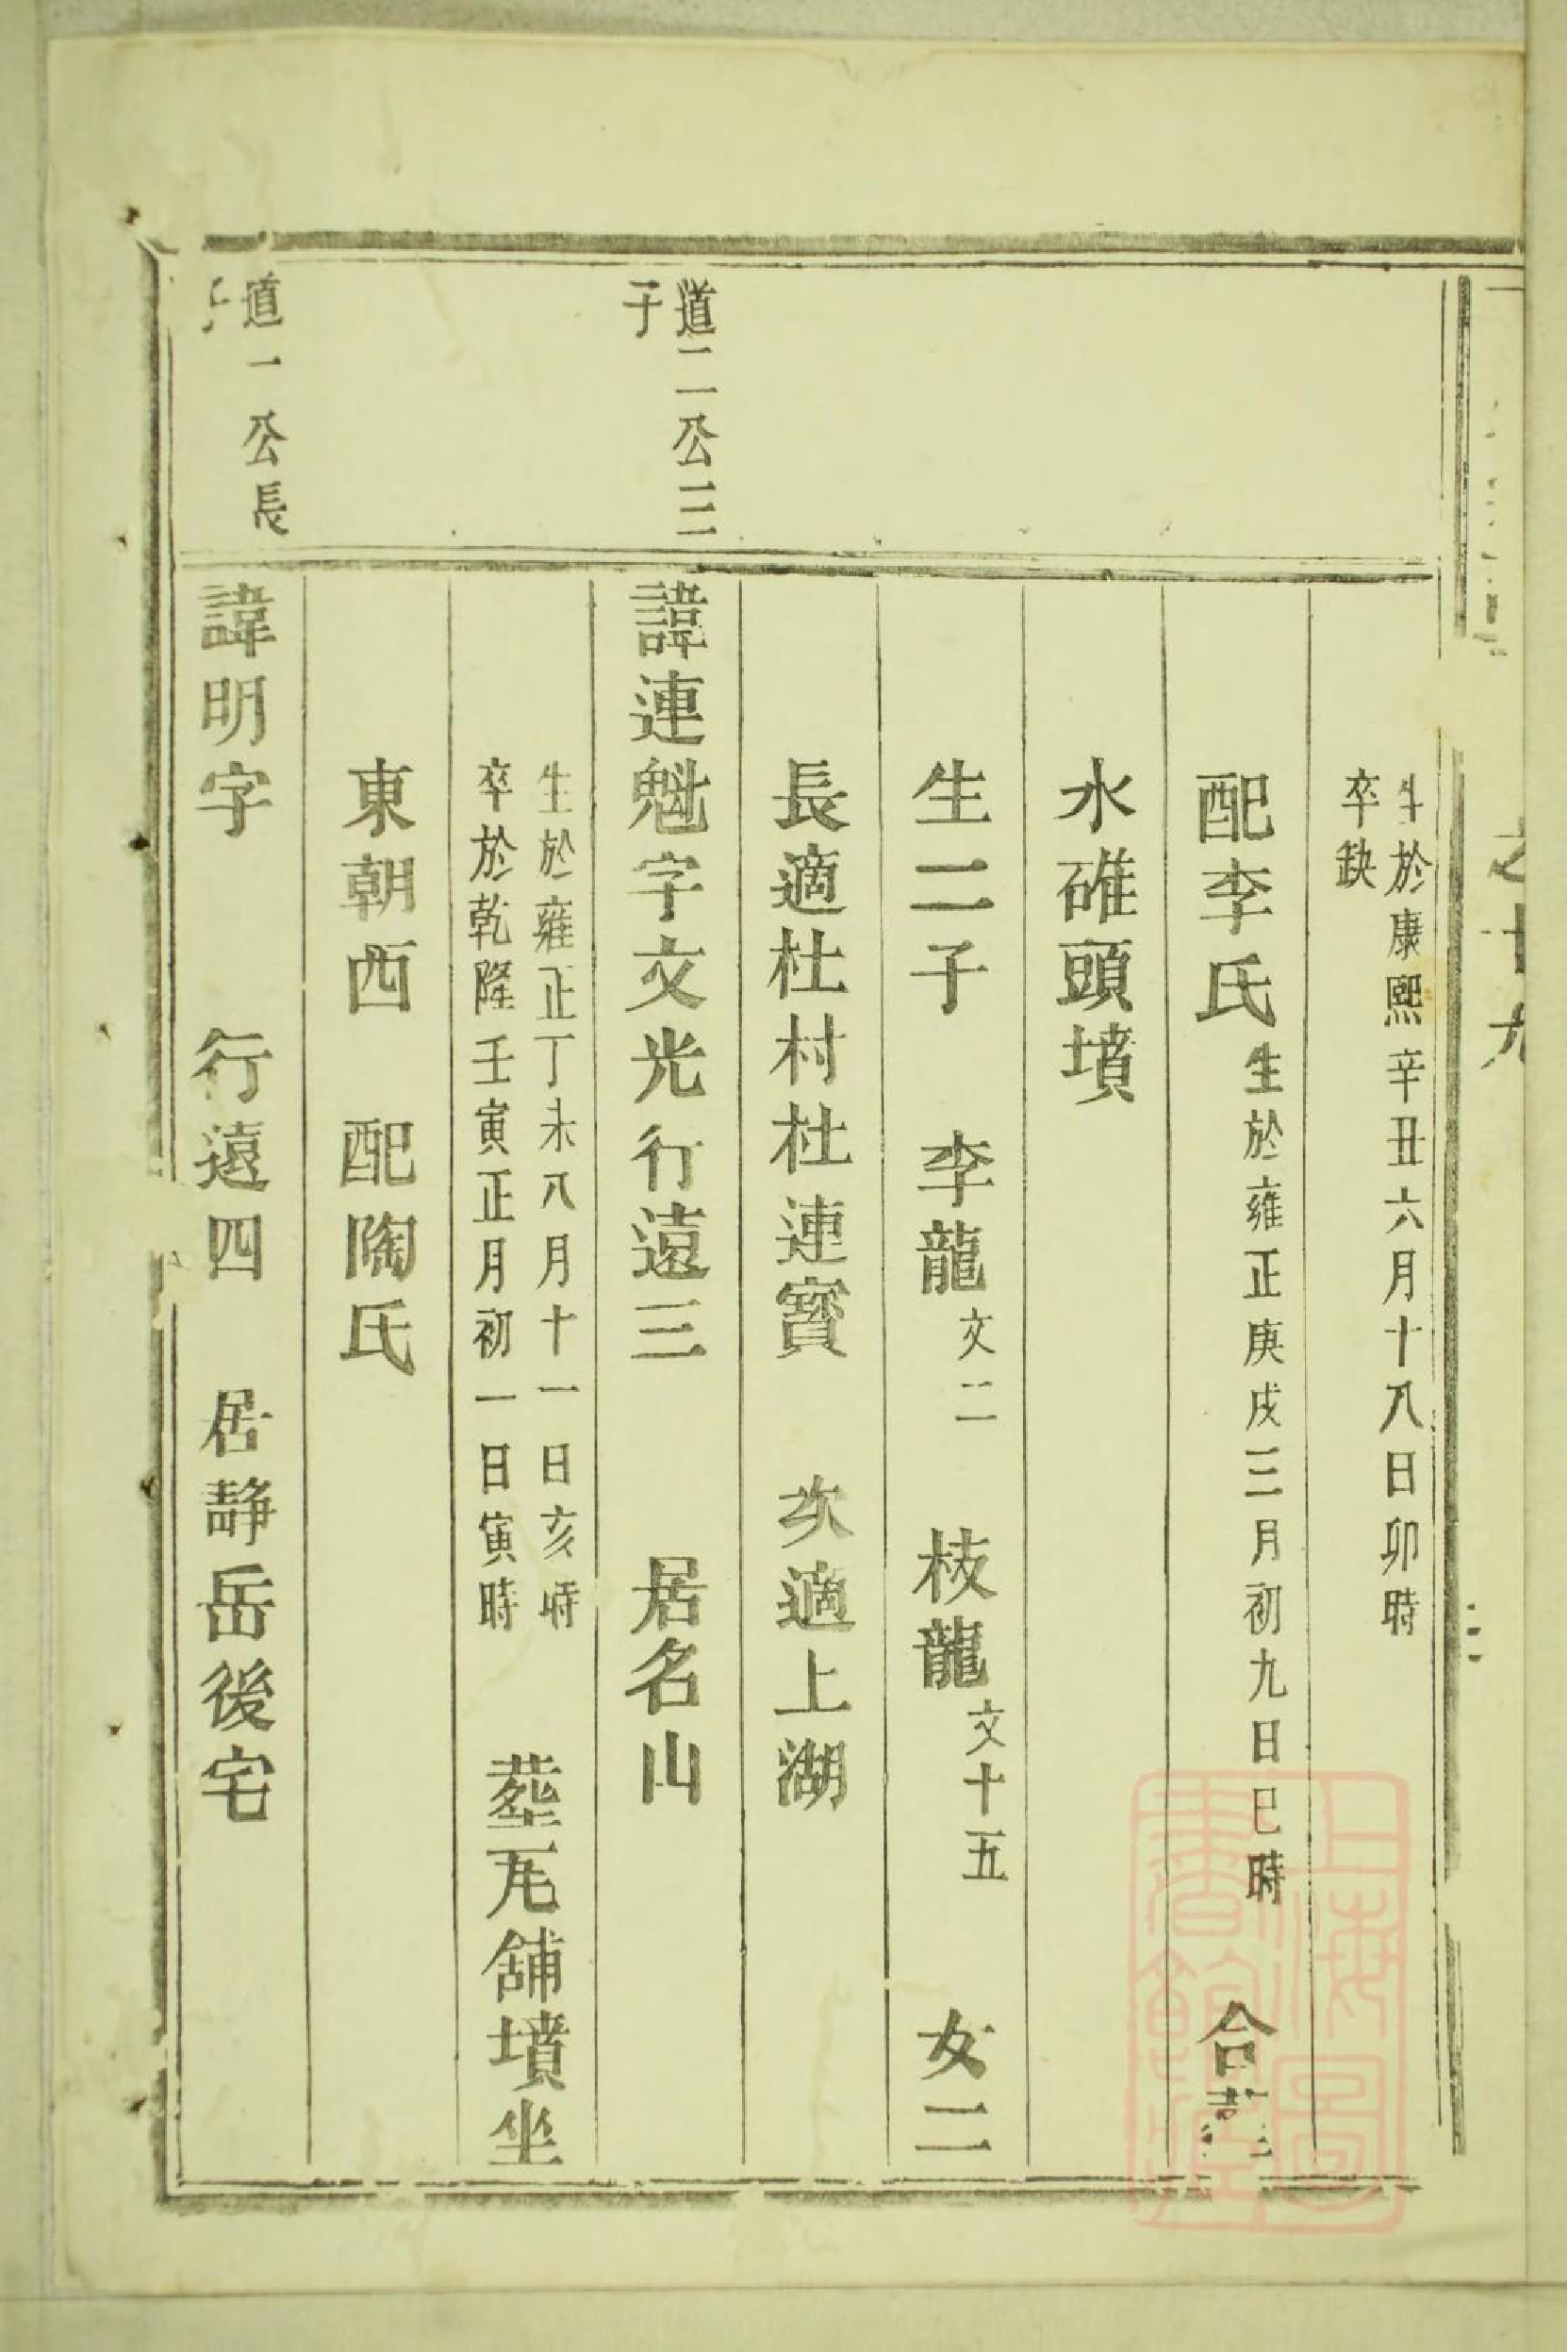 之廿九
生於康熙辛丑六月十八日卯時
卒缺
配李氏生於雍正庚戌三月初九日巳時 合葬
水碓頭墳
生二子 李龍文二 枝龍文十五 女二
長適杜村杜連寶 次適上湖
道二公三
子
諱連魁字文光行遠三 居名山
生於雍正丁未八月十一日亥時
卒於乾隆壬寅正月初一日寅時
葬瓦舖墳坐
東朝西 配陶氏
道一公長
子
諱明字 行遠四 居靜岳後宅
上海圖書館藏